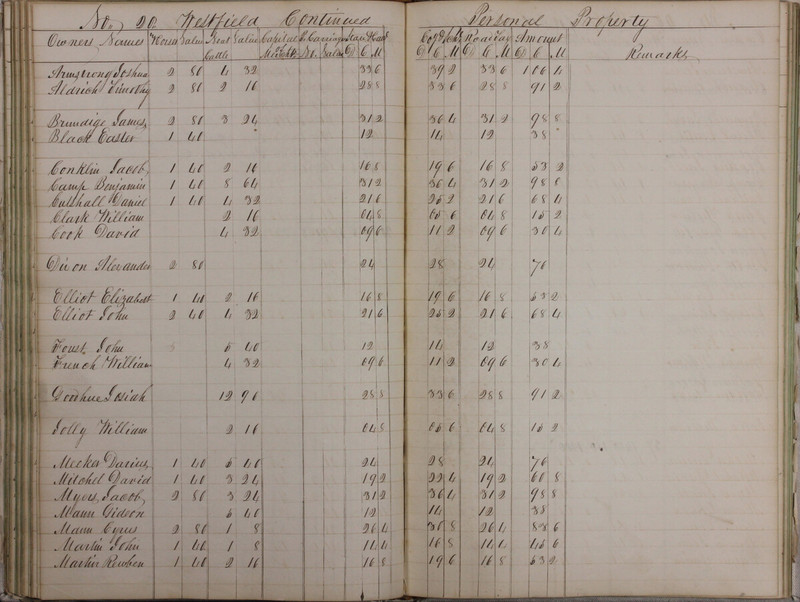 No. 20 Westfield Continued Personal Property
Owners Names Horses Value Neat Cattle Value Capital Merch No. Value State Amount Remarks
Armstrong Joshua 2 80 4 32 33 6 39 2 33 6 1 06 4
Aldrich Timothy 2 80 2 16 28 8 33 6 28 8 91 2
Brundige James 2 80 3 24 31 2 36 4 31 2 98 8
Black Easter 1 40 12 14 12 38
Conklin Jacob 1 40 2 16 16 8 19 6 16 8 53 2
Camp Benjamin 1 40 8 64 31 2 36 4 31 2 98 8
Daniel 1 40 4 32 21 6 25 2 21 6 68 4
Clark William 2 16 04 8 05 6 04 8 15 2
Cook David 4 32 09 6 11 2 09 6 30 4
Dixon Alexander 2 80 24 28 24 76
Elliot Elizabeth 1 40 2 16 16 8 19 6 16 8 53 2
Elliot John 2 40 4 32 21 6 25 2 21 6 68 4
Foust John 5 40 12 14 12 38
French William 4 32 09 6 11 2 09 6 30 4
Josiah 12 96 28 8 33 6 28 8 91 2
Jolly William 2 16 04 8 05 6 04 8 15 2
Meeker Darius 1 40 5 40 24 28 24 76
Mitchel David 1 40 3 24 19 2 22 4 19 2 60 8
Myers Jacob 2 80 3 24 31 2 36 4 31 2 98 8
Mann Gideon 5 40 12 14 12 38
Mann Cyrus 2 80 1 8 26 4 30 8 26 4 83 6
Martin John 1 40 1 8 14 4 16 8 14 4 45 6
Martin Rewben 1 40 2 16 16 8 19 6 16 8 53 2